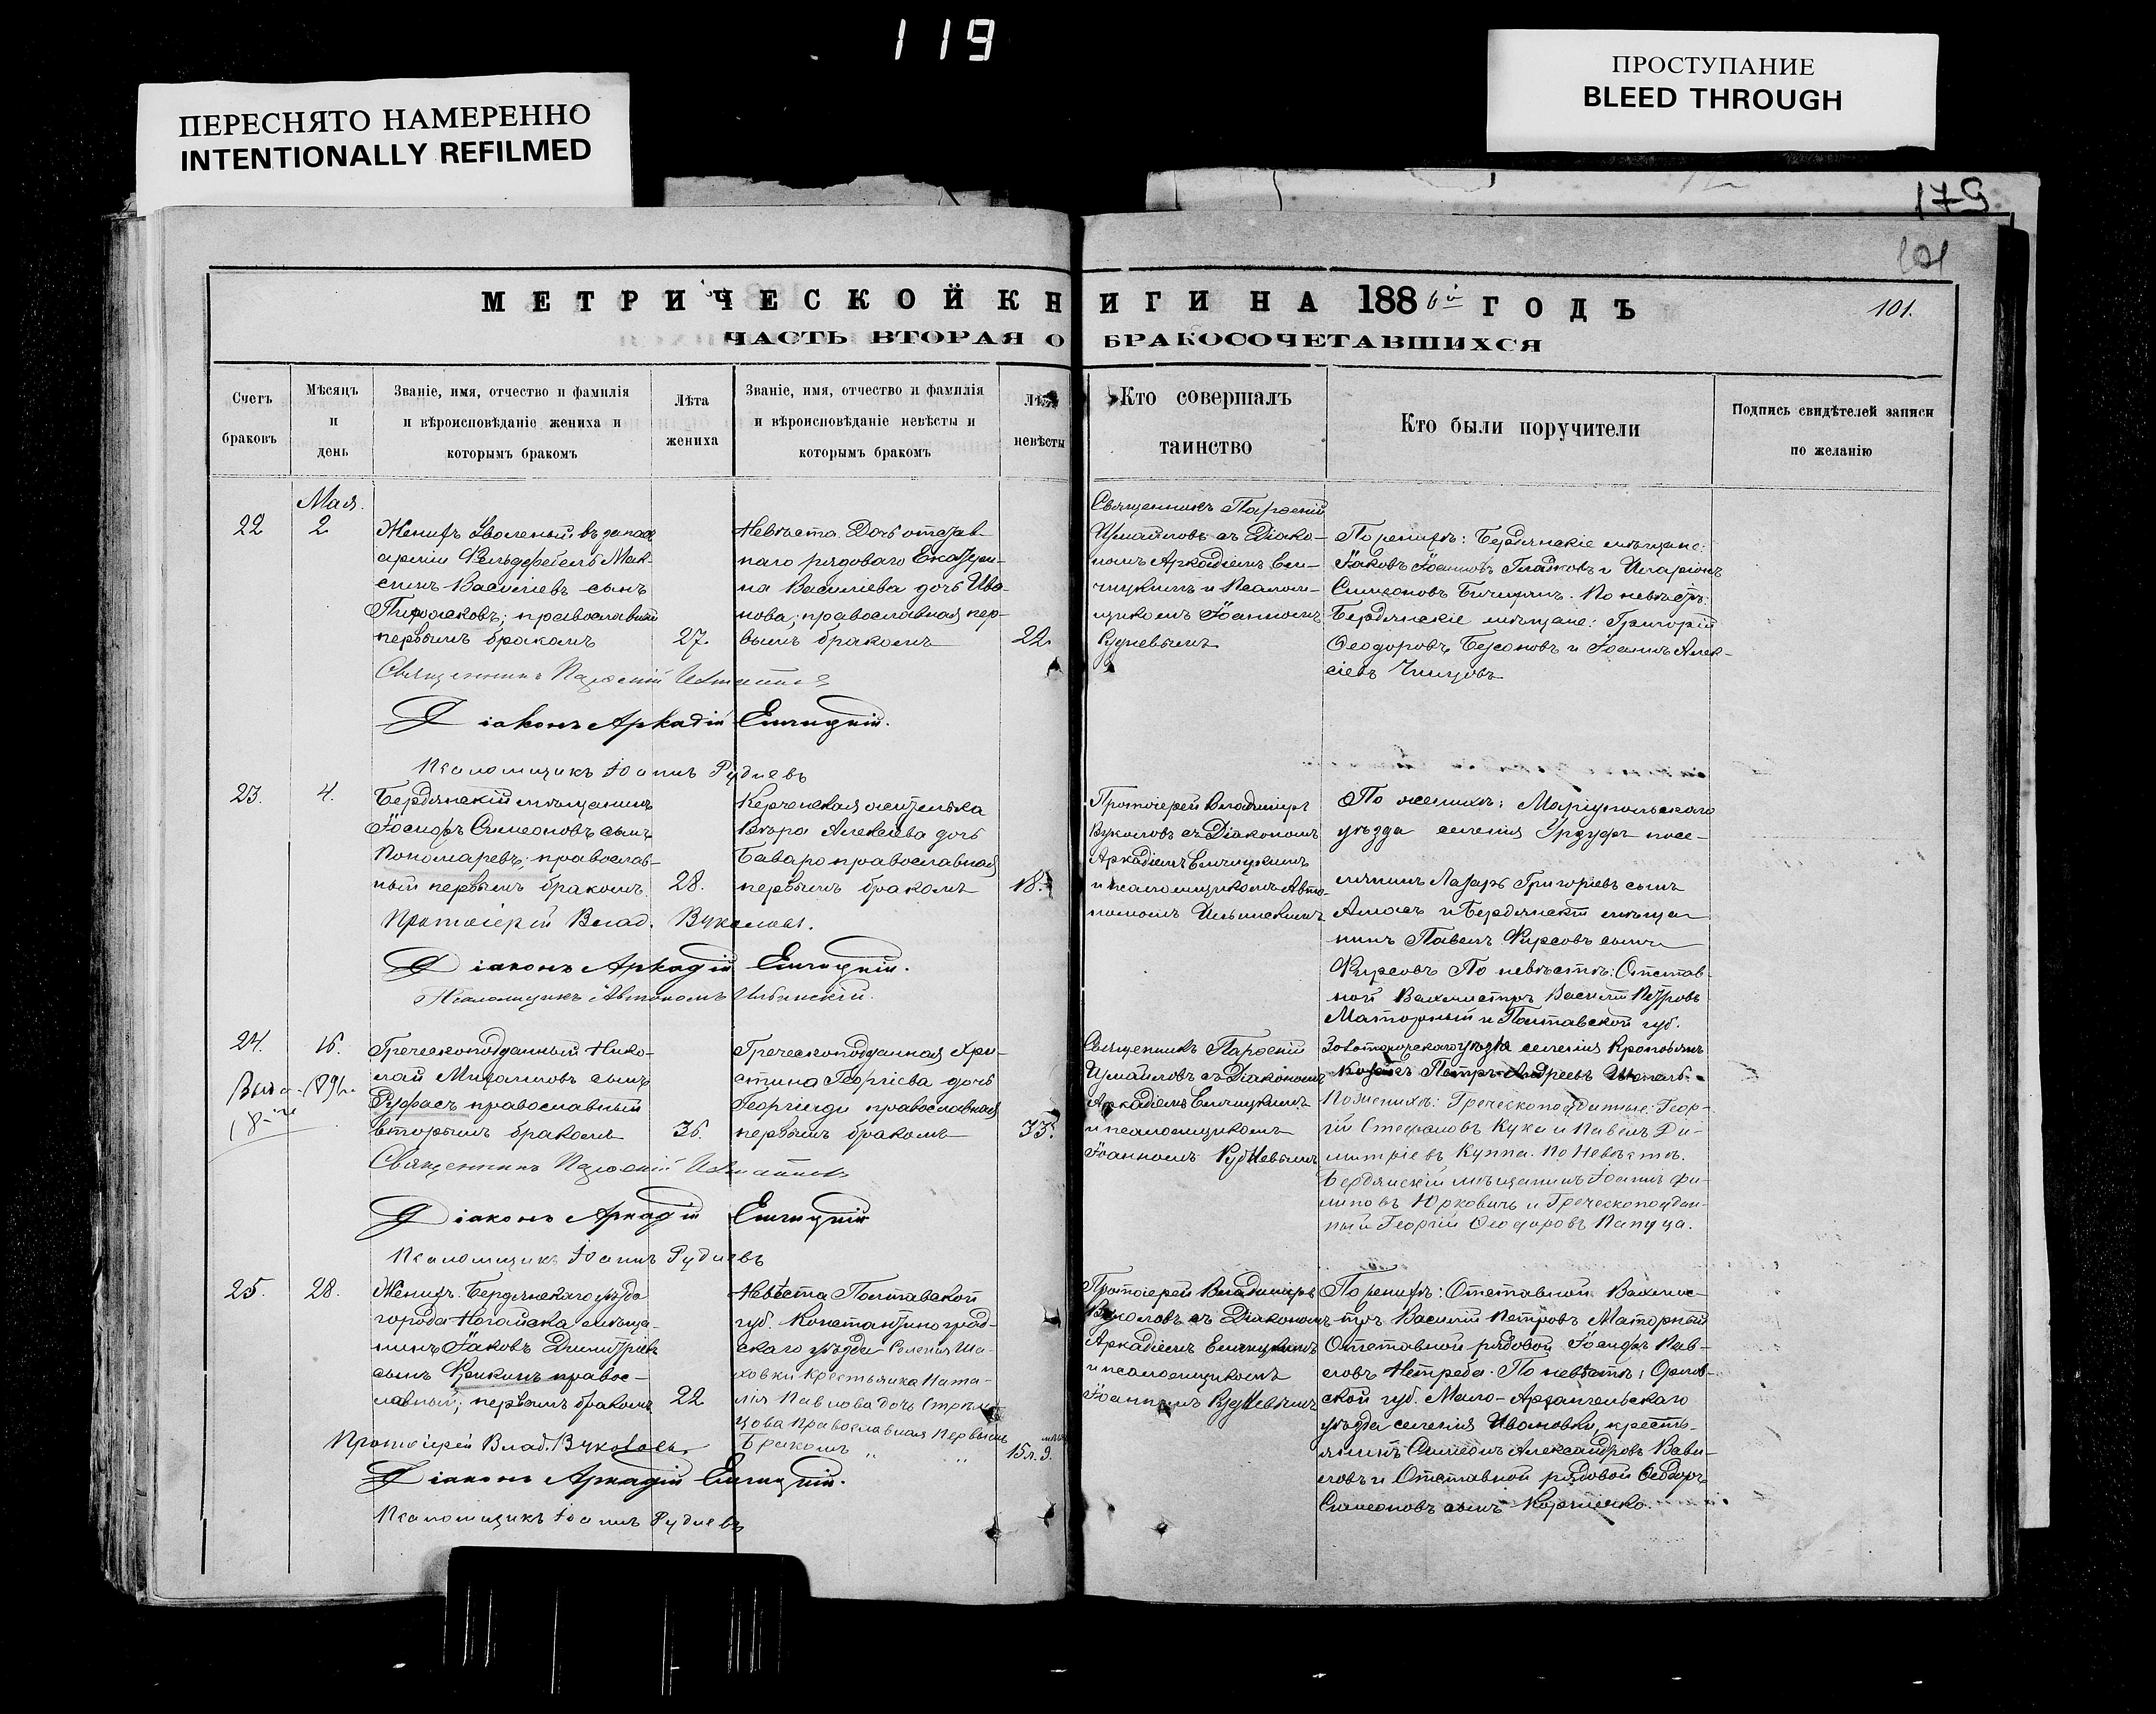 119
ПЕРЕСНЯТО НАМЕРЕННО
INTENTIONALLY REFILMED
ПРОСТУПАНИЕ
BLEED THROUGH
179
101
МЕТРИЧЕСКОЙ КНИГИ НА 1886й ГОДЪ
101.
ЧАСТЬ ВТОРАЯ О БРАКОСОЧЕТАВШИХСЯ
Счетъ браковъ
Мѣсяцъ и день
Званіе, имя, отчество и фамилія
и вѣроисповѣданіе жениха и
которымъ бракомъ
Лѣта жениха
Званіе, имя, отчество и фамилія
и вѣроисповѣданіе невѣсты и
которымъ бракомъ
Лѣта невѣсты
Кто совершалъ
таинство
Кто были поручители
Подпись свидѣтелей записи
по желанію
Мая
22
2
Женихъ Уволеный въ запасъ
арміи Фельдфебель Мак-
симъ Василіевъ сынъ
православный
первымъ бракомъ
27.
Невѣста Дочь отстав-
наго рядоваго Екатери-
на Василіева дочь Ива-
нова; православная пер-
вымъ бракомъ
22.
Священникъ Парѳеній
Измаиловъ съ Діако-
номъ Аркадіемъ Ени-
и Псалом-
щикомъ Іоанномъ
Рудневымъ
По женихѣ: Бердянскіе мѣщане:
Іаковъ Іоанновъ Гладковъ и Иларіонъ
Симеоновъ По невѣстѣ:
Бердянскіе мѣщане: Григорій
Ѳеодоровъ и Іоаннъ Алек-
сіевъ
Священникъ Парѳеній Измаиловъ
Діаконъ Аркадій
Псаломщикъ Іоаннъ Рудневъ
23.
4.
Бердянскій мѣщанинъ
Іосифъ Симеоновъ сынъ
Пономаревъ; православ-
ный первымъ бракомъ
28.
Керченская жителька
Вѣра Алексіева дочь
Баваро православная
первымъ бракомъ
18.
Протоіерей Владиміръ
Вуколовъ съ Діакономъ
Аркадіемъ
и псаломщикомъ Авто-
номомъ Ильинскимъ
По женихѣ: Маріупольскаго
уѣзда селенія Урзуфъ посе-
лянинъ Лазарь Григоріевъ сынъ
и Бердянскій мѣща-
нинъ Павелъ Фирсовъ сынъ
Фирсовъ По невѣстѣ: Отстав-
ной Вахмистръ Василій Петровъ
Маторный и Полтавской губ.
Золотоношскаго уѣзда селенія
Козакъ Петръ Андреевъ
Протоіерей Влад. Вуколовъ.
Діаконъ Аркадій
Псаломщикъ Автономъ Ильинскій.
24.
16.
Греческоподданный Нико-
лай Михаиловъ сынъ
православный
вторымъ бракомъ
36.
Греческоподданная Хри-
стина Георгіева дочь
Георгіади православная
первымъ бракомъ
33.
Священникъ Парѳеній
Измаиловъ съ Діакономъ
Аркадіемъ
и псаломщикомъ
Іоанномъ Рудневымъ
По женихѣ: Греческоподданные: Геор-
гій Стефановъ Кука и Павелъ Ди-
митріевъ Куппа. По Невѣстѣ.
Бердянскій мѣщанинъ Іоаннъ Фи-
липовъ Юрковичъ и Греческоподдан-
ный Георгій Ѳеодоровъ Папуца.
Священникъ Парѳеній Измаиловъ
Діаконъ Аркадій
Псаломщикъ Іоаннъ Рудневъ
25.
28.
Женихъ Бердянскаго уѣзда
города Ногайска мѣща-
нинъ Іаковъ Димитріевъ
сынъ правос-
лавный; первымъ бракомъ
22
Невѣста Полтавской
губ. Константиноград-
скаго уѣзда селенія Ша-
ховки Крестьянка Ната-
лія Павлова дочь
православная первымъ
Бракомъ
15 л. 9.
Протоіерей Владиміръ
Вуколовъ съ Діакономъ
Аркадіемъ
и псаломщикомъ
Іоанномъ Рудневымъ
По женихѣ: Отставной Вахмис-
тръ Василій Петровъ Маторный
Отставной рядовой Іосифъ Пав-
ловъ Нетреба. По невѣстѣ: Орлов-
ской губ. Мало-Архангельскаго
уѣзда селенія Ивановки, кресть-
янинъ Симеонъ Александровъ Вави-
ловъ и Отставной рядовой Ѳеодоръ
Симеоновъ сынъ
Протоіерей Влад. Вуколовъ.
Діаконъ Аркадій
Псаломщикъ Іоаннъ Рудневъ